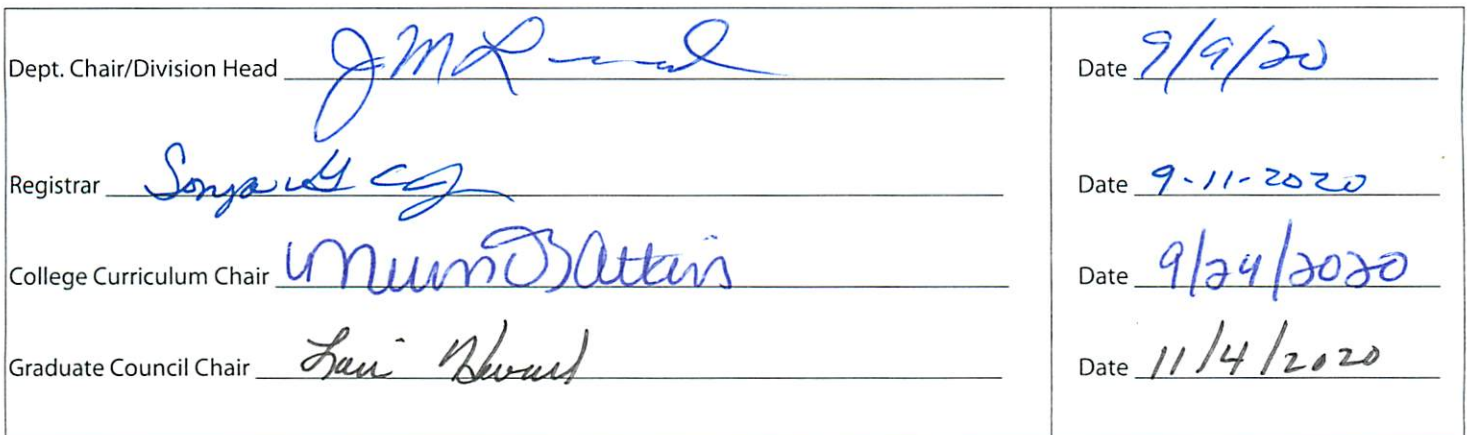 Dept. Chair/Division Head J M R Date 9/9/20
Registrar Sonya Date 9-11-2020
College Curriculum Chair B Atkins Date 9/24/2020
Graduate Council Chair Lori Howard Date 11/4/2020